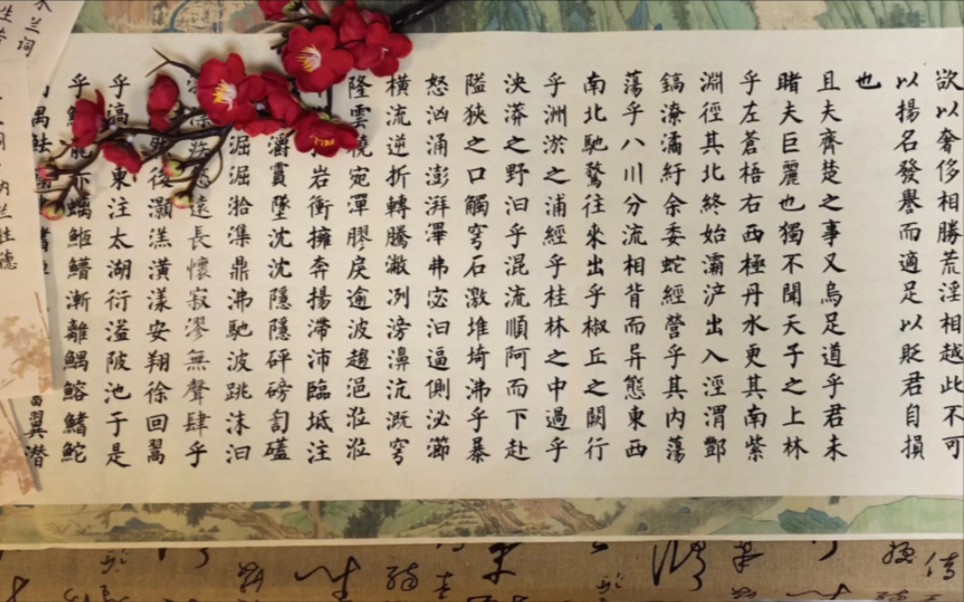 欲以奢侈相勝荒淫相越此不可
以揚名發譽而適足以貶君自損
也
且夫齊楚之事又烏足道乎君未
睹夫巨麗也獨不聞天子之上林
乎左蒼梧右西極丹水更其南紫
淵徑其北終始灞浐出入涇渭酆
鎬潦潏紆余委蛇經營乎其内蕩
蕩乎八川分流相背而异態東西
南北馳騖往來出乎椒丘之闕行
乎洲淤之浦經乎桂林之中過乎
泱漭之野汩乎混流順阿而下赴
隘狹之口觸穹石激堆埼沸乎暴
怒洶涌澎湃滭弗宓汩逼側泌節
橫流逆折轉騰潎冽滂濞沆溉穹
隆雲橈宛潬膠戾逾波趨浥涖涖
岩衝擁奔揚滯沛臨坻注
灂霣墜沈沈隱隱砰磅訇礚
淈淈湁潗鼎沸馳波跳沫汩
疾悠遠長懷寂漻無聲肆乎
然後灝溔潢漾安翔徐回翯
乎滈東注太湖衍溢陂池于是
乎龍赤螭䱭䲛漸離鰅鰫鰭鮀
禺魼翼潜
木兰词
纳兰性德